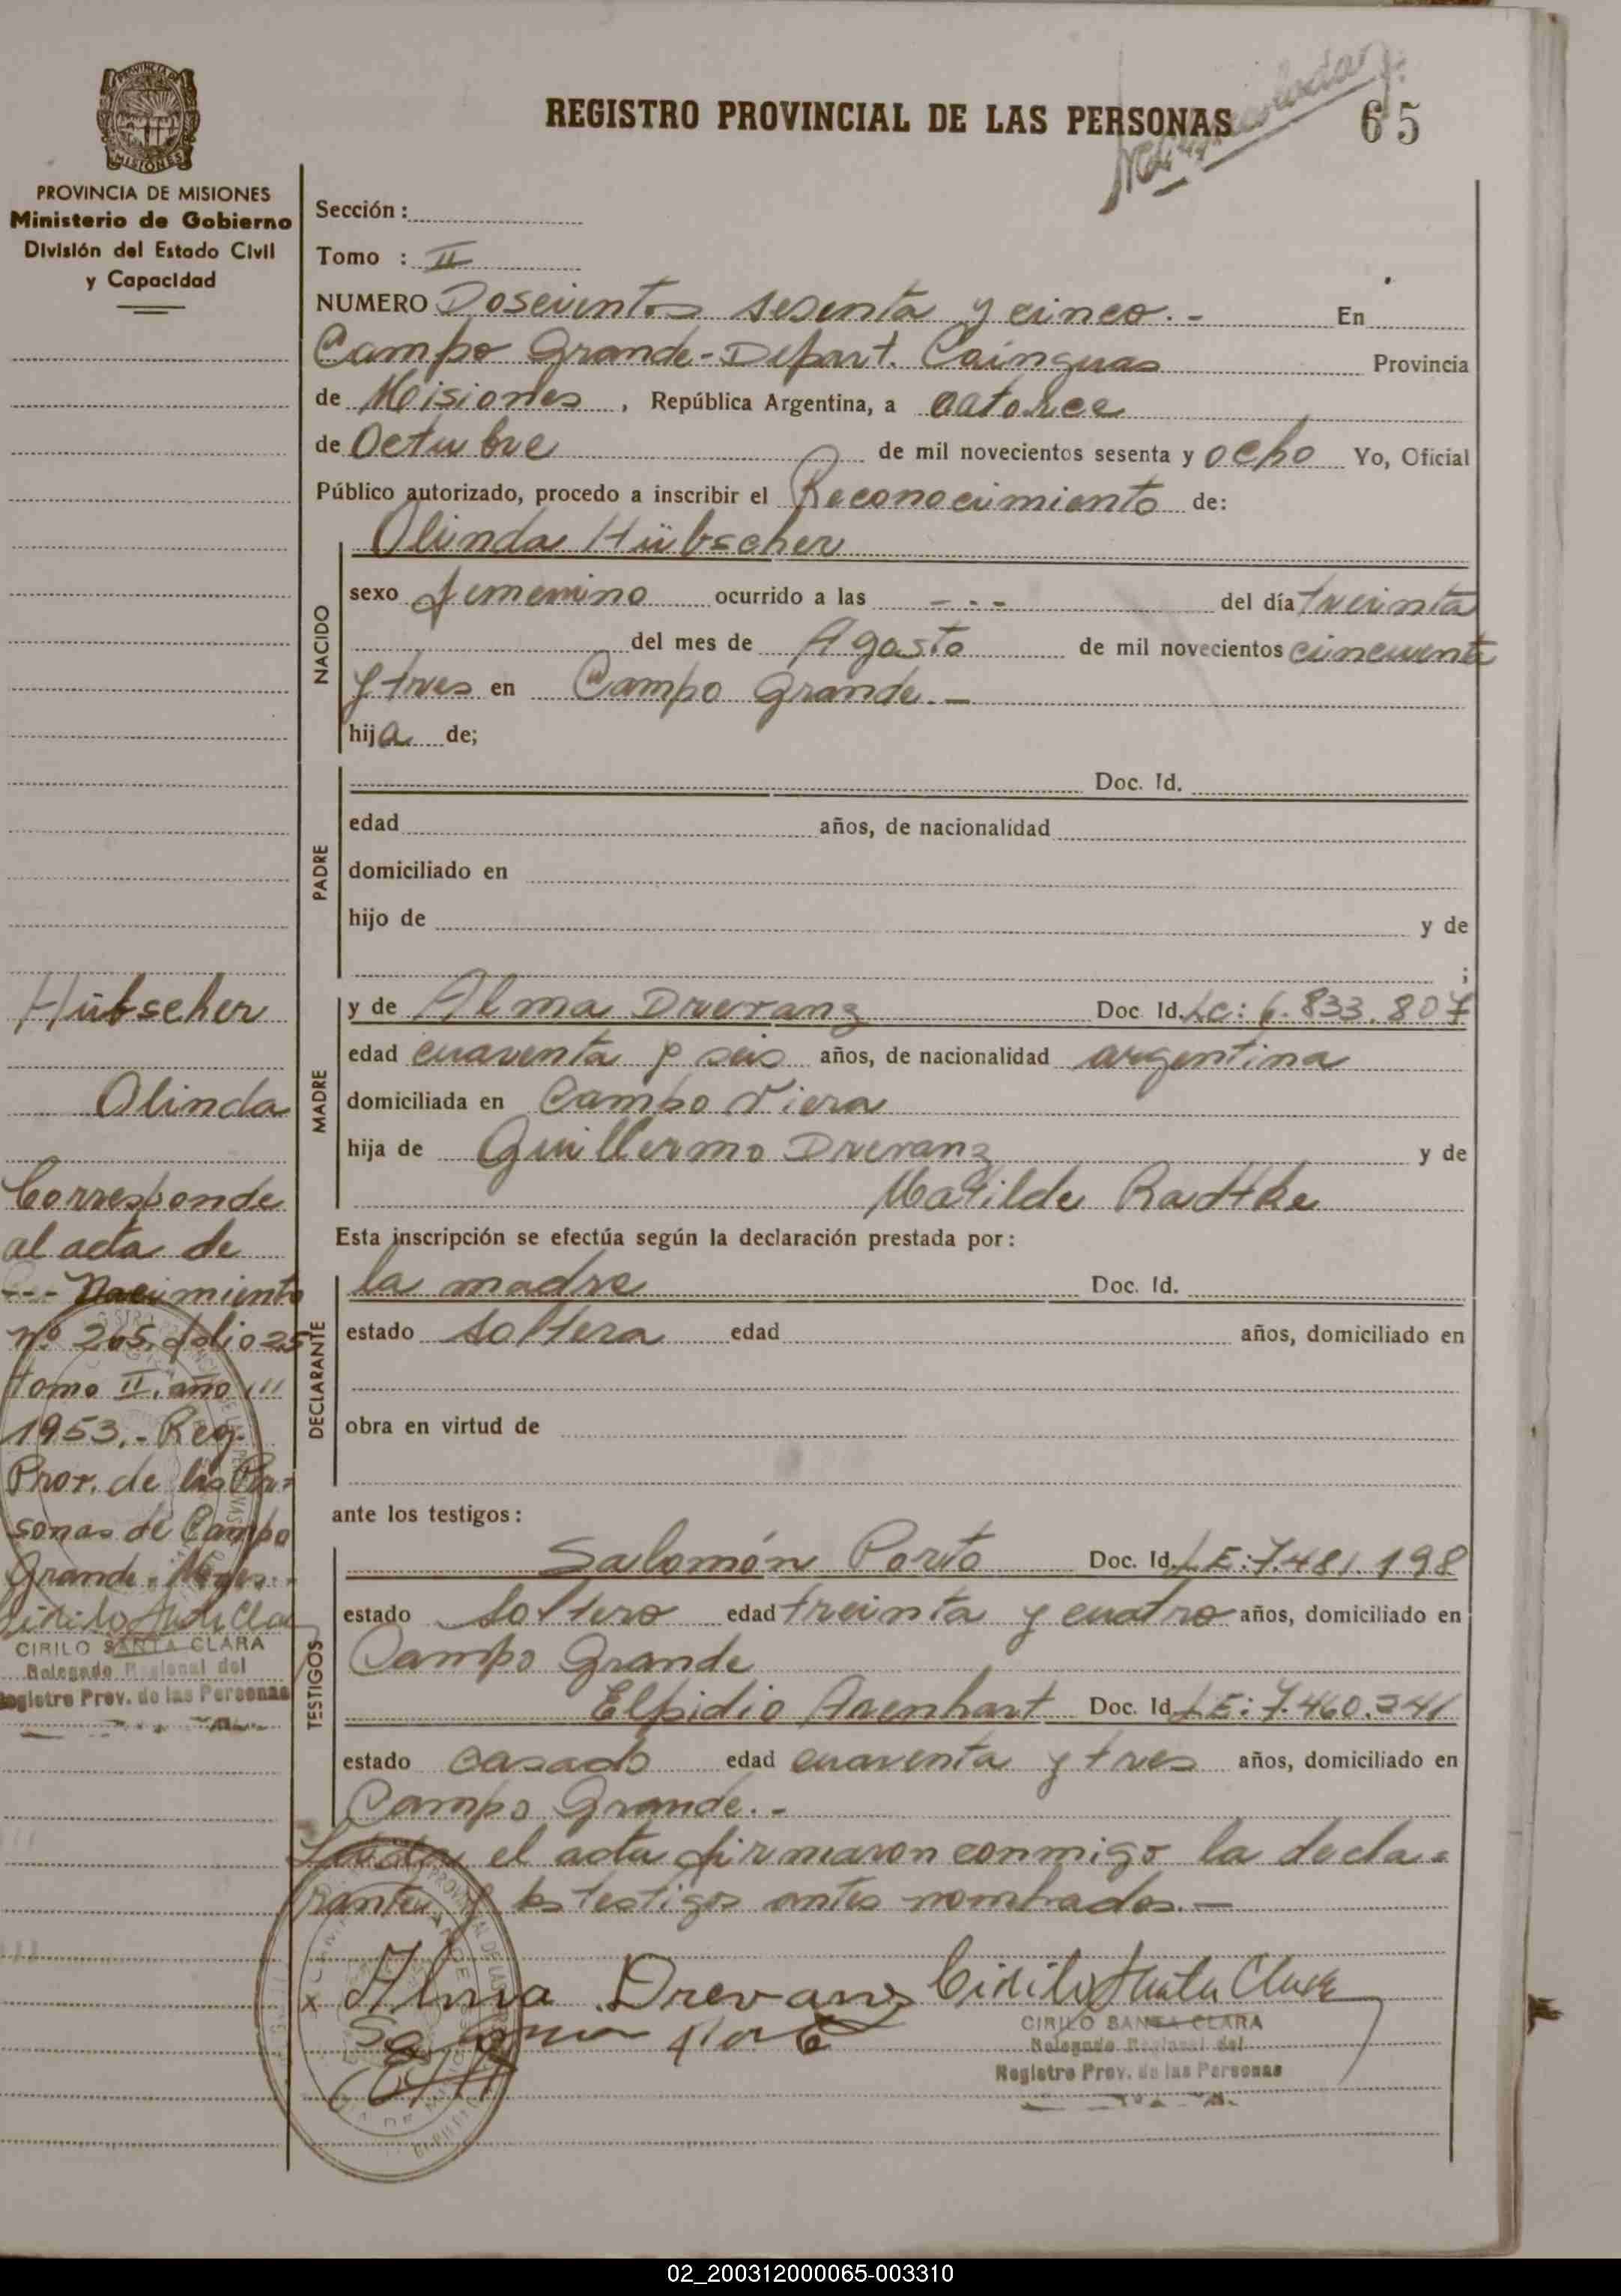 REGISTRO PROVINCIAL DE LAS PERSONAS
65
PROVINCIA DE MISIONES
MISIONES
PROVINCIA DE MISIONES
Ministerio de Gobierno
División del Estado Civil
y Capacidad
Sección :
Tomo : II
NUMERO Doscientos sesenta y cinco.- En
Campo Grande-Depart. Cainguas Provincia
de Misiones, República Argentina, a catorce
de Octubre de mil novecientos sesenta y ocho Yo, Oficial
Público autorizado, procedo a inscribir el Reconocimiento de:
Olinda Hübscher
NACIDO
sexo femenino ocurrido a las - - - del día treinta
del mes de Agosto de mil novecientos cincuenta
y tres en Campo Grande.-
hija de;
PADRE
Doc. Id.
edad años, de nacionalidad
domiciliado en
hijo de y de
;
MADRE
y de Alma Drevanz Doc Id. LC: 6.833.807
edad cuarenta y seis años, de nacionalidad argentina
domiciliada en Campo Viera
hija de Guillermo Drevanz y de
Matilde Radtke
Esta inscripción se efectúa según la declaración prestada por:
DECLARANTE
la madre Doc. Id.
estado soltera edad años, domiciliado en
obra en virtud de
ante los testigos:
TESTIGOS
Salomón Porto Doc. Id. LE: 7.481.198
estado soltero edad treinta y cuatro años, domiciliado en
Campo Grande
Elpidio Arenhart Doc. Id. LE: 7.460.341
estado casado edad cuarenta y tres años, domiciliado en
Campo Grande.-
Leida el acta firmaron conmigo la decla-
rante y los testigos antes nombrados.-
x Alma Drevanz Cirilo Santa Clara
CIRILO SANTA CLARA
Delegado Regional del
Registro Prov. de las Personas
Hübscher
Olinda
Corresponde
al acta de
--- Nacimiento
nº 265, folio 25
tomo II, año
1953.- Reg.
Prov. de las Per-
sonas de Campo
Grande.- Mnes.-
Cirilo Santa Cla
CIRILO SANTA CLARA
Delegado Regional del
Registro Prov. de las Personas
02_200312000065-003310